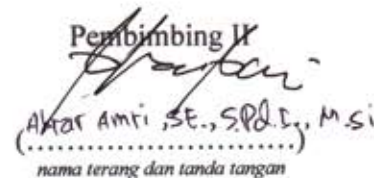 Pembimbing II
Akrar Amri, SE., S.Pd.I., M.si
(..............................)
nama terang dan tanda tangan